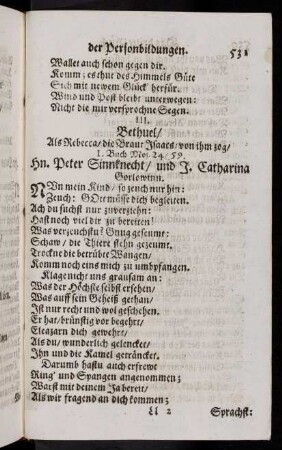 der Personbildungen.
531
Wallet auch schon gegen dir.
Komm; es thut des Himmels Güte
Sich mit newem Glück herfür.
Wind und Post bleibt unterwegen:
Nicht die mir versprochne Segen.
III.
Bethuel/
Als Rebecca/ die Braut Isaacs/ von ihm zog/
I. Buch Mos. 24/ 59.
Hn. Peter Sinnknecht/ und J. Catharina
Gorlowinn.
NUn mein Kind/ so zeuch nur hin:
Zeuch: GOtt müsse dich begleiten.
Ach du suchst nur zuverziehn:
Hast noch viel dir zu bereiten!
Was verzeuchstu? Gnug geseumt:
Schaw/ die Thiere stehn gezeumt.
Trockne die betrübte Wangen/
Komm noch eins mich zu umbpfangen.
Klage nicht uns grausam an:
Was der Höchste selbst ersehen/
Was auff sein Geheiß gethan/
Ist nur recht und wol geschehen.
Er hat/ brünstig vor begehrt/
Eleazarn dich gewehrt/
Als du/ wunderlich gelencket/
Ihn und die Kamel geträncket.
Darumb hastu auch erfrewt
Ring' und Spangen angenommen;
Warst mit deinem Ja bereit/
Als wir fragend an dich kommen;
Ll 2
Sprachst: